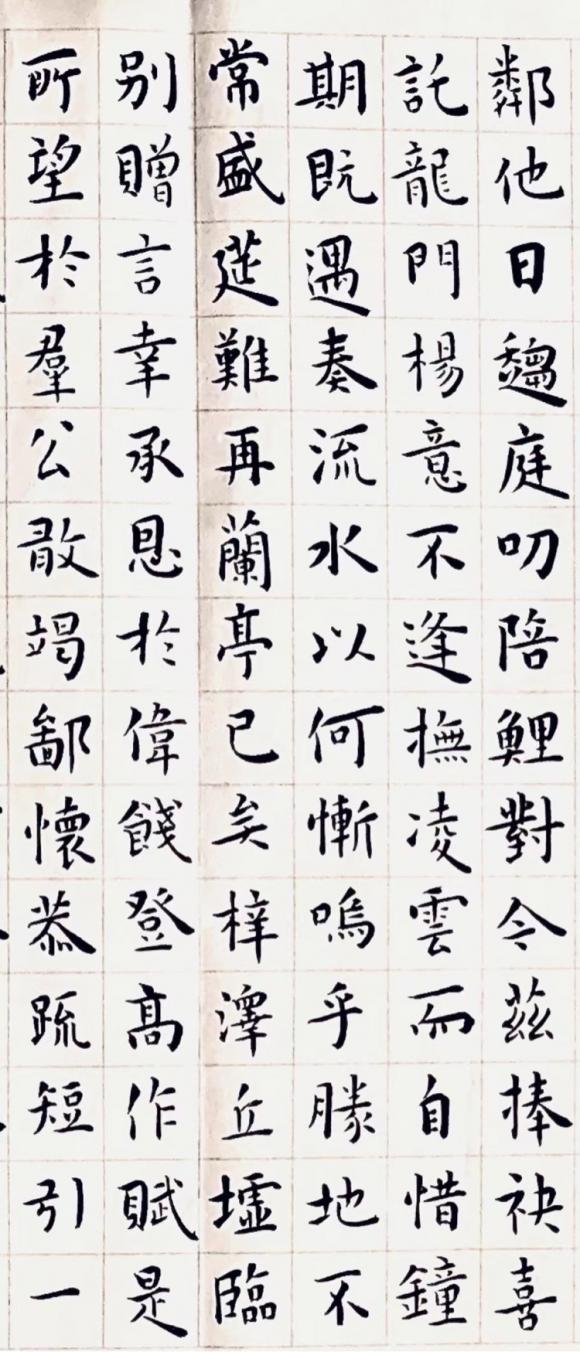 鄰他日趨庭叨陪鯉對今茲捧袂喜
託龍門楊意不逢撫凌雲而自惜鐘
期既遇奏流水以何慚嗚乎勝地不
常盛筵難再蘭亭已矣梓澤丘墟臨
別贈言幸承恩於偉餞登高作賦是
所望於羣公敢竭鄙懷恭疏短引一